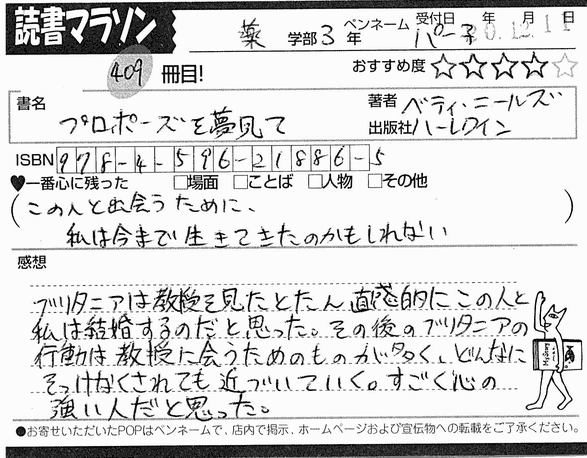 読書マラソン
薬 学部 3 年 ペンネーム パー子 受付日 年 月 日 20.12.11
409 冊目! おすすめ度 ★★★★☆
書名 プロポーズを夢見て
著者 ベティ・ニールズ
出版社 ハーレクイン
ISBN 978-4-596-21886-5
♥一番心に残った □場面 □ことば □人物 □その他
(この人と出会うために、
私は今まで生きてきたのかもしれない)
感想
ブリタニアは教授を見たとたん直感的にこの人と
私は結婚するのだと思った。その後のブリタニアの
行動は教授に会うためのものが多く、どんなに
そっけなくされても近づいていく。すごく心の
強い人だと思った。
●お寄せいただいたPOPはペンネームで、店内で掲示、ホームページおよび宣伝物への転載をご了承ください。